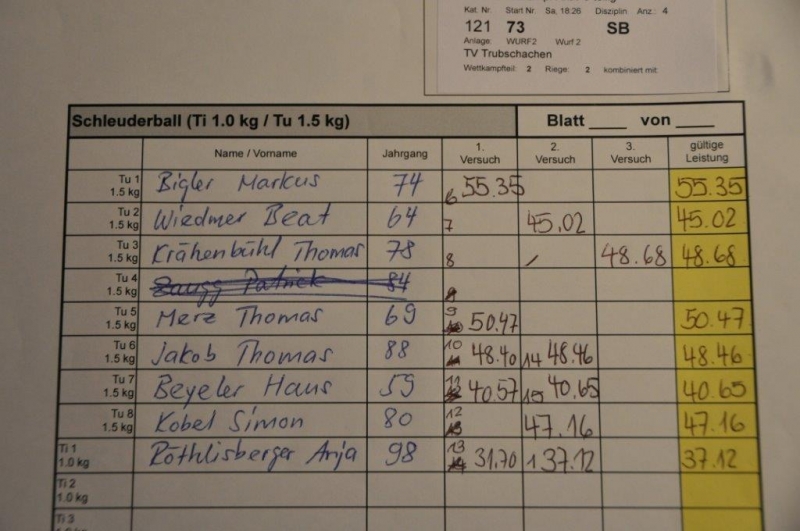 Kat. Nr. Start Nr. Sa, 18.26 Disziplin Anz.: 4
121 73 SB
Anlage: WURF2 Wurf 2
TV Trubschachen
Wettkampfteil: 2 Riege: 2 kombiniert mit:
Schleuderball (Ti 1.0 kg / Tu 1.5 kg) Blatt ____ von ____
Name / Vorname Jahrgang 1. Versuch 2. Versuch 3. Versuch gültige Leistung
Tu 1 1.5 kg Bigler Markus 74 6 55.35 55.35
Tu 2 1.5 kg Wiedmer Beat 64 7 45.02 45.02
Tu 3 1.5 kg Krähenbühl Thomas 78 8 / 48.68 48.68
Tu 4 1.5 kg Zaugg Patrick 84
Tu 5 1.5 kg Merz Thomas 69 9 50.47 50.47
Tu 6 1.5 kg Jakob Thomas 88 10 48.40 14 48.46 48.46
Tu 7 1.5 kg Beyeler Hans 59 11 40.57 15 40.65 40.65
Tu 8 1.5 kg Kobel Simon 80 12 47.16 47.16
Ti 1 1.0 kg Röthlisberger Anja 98 13 31.70 1 37.12 37.12
Ti 2 1.0 kg
Ti 3